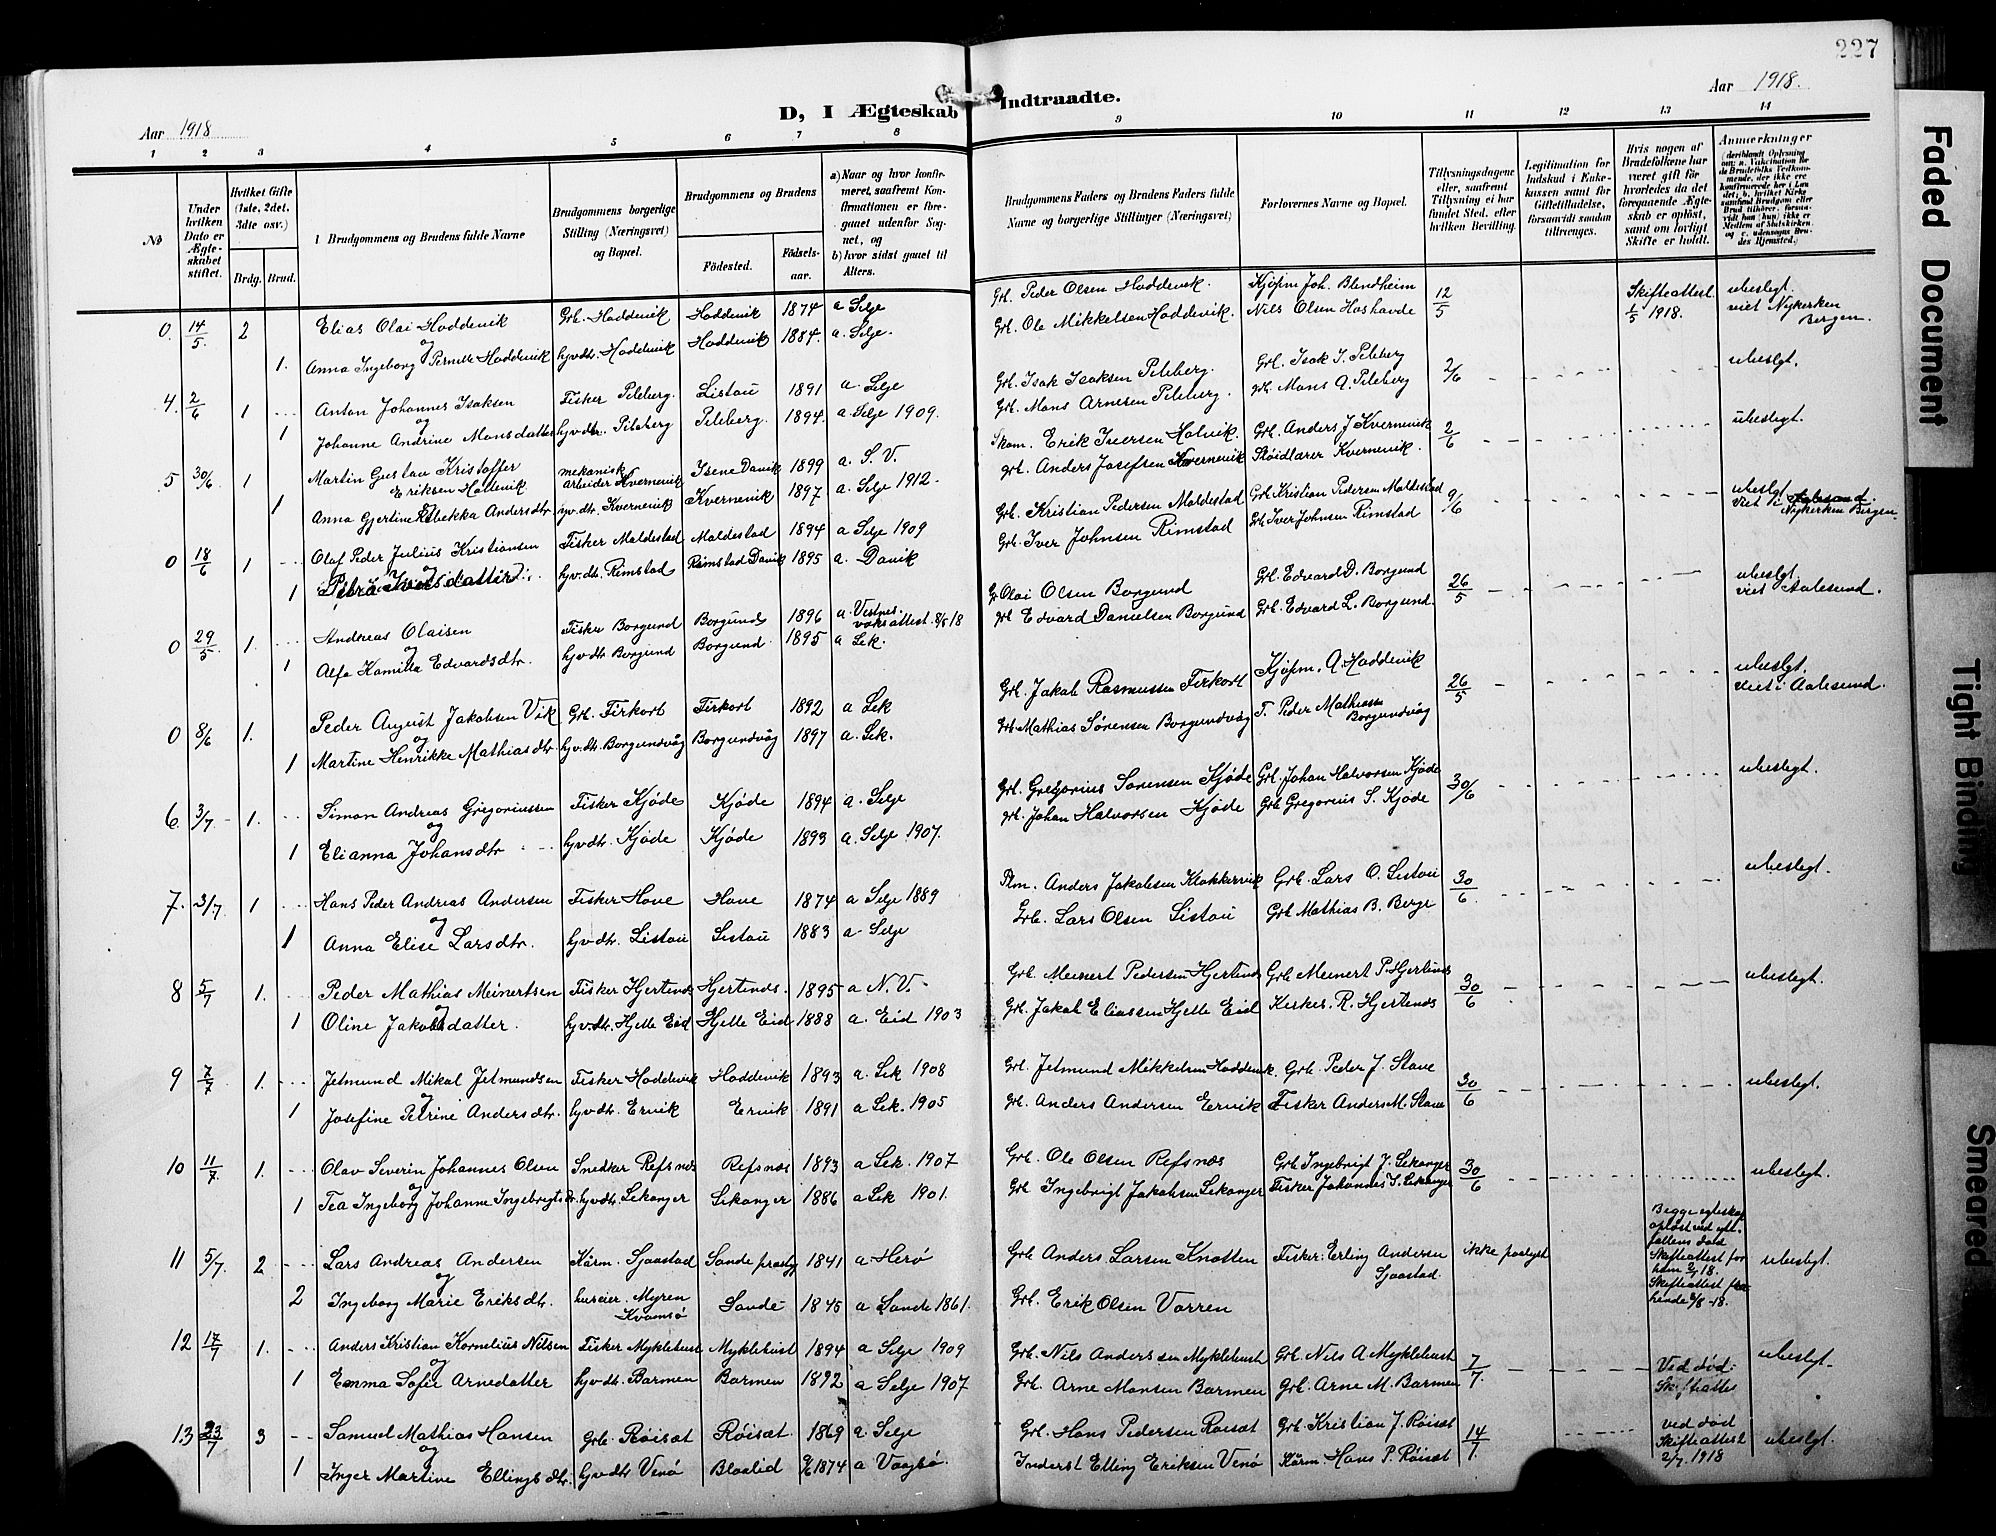 227
Aar 1918
D, I Ægteskab Indtraadte.
Aar 1918.
1 2 3 4 5 6 7 8 9 10 11 12 13 14
No
Under hvilken Dato er Ægteskabet stiftet.
Hvilket Gifte (1ste, 2det, 3die osv.)
Brdg. Brud.
Brudgommens og Brudens fulde Navne
Brudgommens borgerlige Stilling (Næringsvei) og Bopæl.
Brudgommens og Brudens
Födested.
Födselsaar.
a) Naar og hvor konfirmeret, saafremt Konfirmationen er foregaaet udenfor Sognet, og
b) hvor sidst gaaet til Alters.
Brudgommens Faders og Brudens Faders fulde Navne og borgerlige Stillinger (Næringsvei)
Forlovernes Navne og Bopæl.
Tillysningsdagene eller, saafremt Tillysning ei har fundet Sted, efter hvilken Bevilling.
Legitimation for Indskud i Enkekassen samt for Giftetilladelse, forsaavidt saadan tiltrænges.
Hvis nogen af Brudefolkene har været gift før hvorledes da det foregaaende Ægteskab er oplöst, samt om lovligt Skifte er holdt.
Anmerkninger
0. 14/5. 2 Elias Olai Hoddevik Grb. Hoddevik Hoddevik 1874 a Selje Grb. Peder Olsen Hoddevik. Kjøpm Joh. Blendheim 12/5 Skifteattest 1/5 1918. ubeslegt. viet Nykerken Bergen.
og
1. Anna Ingeborg Pernille Hoddevik hjvdtr. Hoddevik Hoddevik 1884. a. Selje. Grb. Ole Mikkelsen Hoddevik. Nils Olsen Hoshavde
4. 2/6 1 Anton Johannes Isaksen Fisker Pileberg. Listau 1891 a. Selje Grb. Isak Isaksen Pileberg. Grb. Isak I. Pileberg 2/6 ubeslgt.
og
1 Johanne Andrine Monsdatter hjvdtr. Pileberg Pileberg. 1894 a. Selje 1909. Grb. Mons Arnesen Pileberg. grb. Mons A. Pileberg
5 30/6 1 Martin Gustav Kristoffer Eriksen Halvik mekanisk arbeider Kvernevik Isene Davik 1899 a. S. V. Skom. Erik Iversen Halvik. Grb. Anders J Kvernevik 2/6 ubeslgt.
1 Anna Gjertine Rebekka Andersdtr hjvdtr. Kvernevik Kvernevik 1897 a. Selje 1912. grb. Anders Josefsen Kvernevik Kvernevik.
0 18/6 1 Olaf Peder Julius Kristiansen Fisker Maldestad Maldestad 1894 a Selje 1909 Grb. Kristian Pedersen Maldestad Grb Kristian Pedersen Maldestad 9/6 ubeslgt viet i Nykerken Bergen.
og
1 Petra Iversdatter hjvdtr. Rimstad Rimstad Davik 1895 a. Davik Grb. Iver Johnsen Rimstad Grb. Iver Johnsen Rimstad
0 29/5 1. Andreas Olaisen Fisker Borgund Borgund 1896 a. Vestnes. Olai Olsen Borgund Grb. Edvard D. Borgund 26/5 ubeslgt. viet Aalesund.
og
1 Alfa Kamilla Edvardsdtr. hjvdtr Borgund Borgund 1895 a Sek. grb Edvard Danielsen Borgund Grb. Edvard L. Borgund.
0 8/6 1. Peder August Jakobsen Vik Grb. Firkort Firkort 1892 a Sek Grb. Jakob Rasmussen Firkort Kjøpm. A. Hoddevik 26/5 ubeslgt. viet i Aalesund.
og
1 Martine Henrikke Mathiasdtr hjvdtr. Borgundvåg Borgundvåg 1897 a. Sek. Grb Mathias Sørensen Borgundvåg F. Peder Mathiassen Borgundvåg
6 3/7 1. Simon Andreas Gregoriussen Fisker Kjöde Kjöde 1894 a. Selje Grb. Gregorius Sørensen Kjöde Grb. Johan Halvorsen Kjöde 30/6 ubeslegt.
og
1 Elianna Johansdtr hjvdtr. Kjöde Kjöde 1893 a. Selje 1907. grb. Johan Halvorsen Kjöde Grb Gregorius S. Kjöde
7. 3/7. 1 Hans Peder Andreas Andersen Fisker Hove Hove 1874 a Selje 1889 Anders Jakobsen Klokkervik Grb. Lars O. Listau 30/6. ubeslegt.
og
1 Anna Elise Larsdtr. hjvdtr. Listau Listau 1883 a Selje Grb. Lars Olsen Listau Grb Mathias B. Berge
8 5/7 1. Peder Mathias Meinertsen Fisker Hjertenes Hjertenes. 1895 a N. V. Grb. Meinert Pedersen Hjertenes Grb Meinert P. Hjertenes 30/6 ubeslegt.
og
1 Oline Jakobsdatter. hjvdtr. Hjelle Eid Hjelle Eid 1888 a. Eid 1903 Grb. Jakob Eliassen Hjelle Eid R. Hjertenes
9 7/7 1. Jetmund Mikal Jetmundsen Fisker Hoddevik Hoddevik 1893 a. Sek 1908 Grb. Jetmund Mikkelsen Hoddevik. Grb. Peder J. Stave 30/6 ubeslegt.
og
1 Josefine Petrine Andersdtr. hjvdtr. Ervik Ervik 1891 a Sek. 1905 Grb. Anders Andersen Ervik Fisker Anders M. Stave
10 11/7. 1. Olav Severin Johannes Olsen Snedker Refsnes Refsnes 1893 a Sek. 1907 Grb. Ole Olsen Refsnes Grb Ingebrigt J. Sekanger 30/6 ubeslegt.
og
1 Tea Ingeborg Johanne Ingebrigtsdtr. hjvdtr Sekanger Sekanger 1886 a Sek 1901. Grb Ingebrigt Jakobsen Sekanger Fisker Johannes I. Sekanger
11 5/7. 2 Lars Andreas Andersen Kårm. Sjaastad Sande prestgj 1841 a Herø Grb Anders Larsen Knotten Fisker: Erling Andersen Sjaastad. ikke paalyst Begge egteskap opløst ved ektefellens død Skifteattest for ham 2/7 18. Skifteattest for hende 9/8 -18. ubeslegt.
og
2 Ingeborg Marie Eriksdtr. huseier. Myren Kvamsø Sande 1845 a Sande 1861. Grb. Erik Olsen Vorren
12 17/7 1. Anders Kristian Kornelius Nilsen Fisker Myklebust Myklebust 1894 a Selje 1909 Grb. Nils Andersen Myklebust Grb. Nils A Myklebust 7/7. ubeslegt.
og
1 Emma Sofie Arnedatter hjvdtr. Barmen Barmen 1892 a Selje 1907 Grb. Arne Monsen Barmen Grb. Arne M. Barmen Ved død. Skifteattes
13 23/7 3 Samuel Mathias Hansen Grb. Röisæt Röisæt 1869 a. Selje Grb. Hans Pedersen Røisæt Grb. Kristian J. Röisæt 14/7. ved død Skifteattest 2/7 1918 ubeslgt.
og
1 Inger Martine Ellingsdtr. hjvdtr Venö Bloalid 1874 a Vaagsö. Inderst Elling Eriksen Venö Kårm Hans P. Röisæt
Faded Document
Tight Binding
Smeared